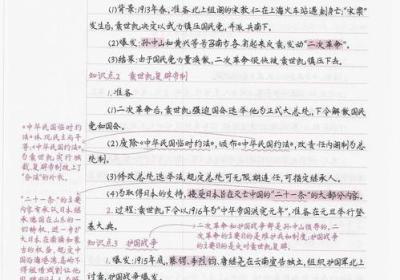 (1)背景:1913年春,准备北上组阁的宋教仁在上海火车站遇刺身亡;"宋案"
发生后,袁世凯决定以武力镇压国民党,并派兵南下。
(2)爆发:孙中山和黄兴等号召南方各省起来反袁,发动"二次革命"。
(3)结果:由于国民党力量涣散,二次革命很快被袁世凯镇压下去。
知识点2 袁世凯复辟帝制
1.准备
(1)二次革命后,袁世凯强迫国会选举他为正式大总统,下令解散国民
党和国会。
(2)废除《中华民国临时约法》,颁布《中华民国约法》,改责任内阁制为总
统制。
(3)修改总统选举法,规定总统可无限期连任,可指定继承人。
(4)为取得日本的支持,接受日本旨在灭亡中国的"二十一条"的大部分内容。
2.过程:袁世凯下令以1916年为"中华帝国洪宪元年",准备在元旦举行登
基大典。
知识点3 护国战争
1.爆发:1915年底,蔡锷、李烈钧、唐继尧在云南宣布独立,组织护国军北上
讨袁,护国战争爆发。
《中华民国临时约
法》体现民主与平
等,《中华民国约法》
为袁世凯实行独
裁、复辟帝制披上了
"合法"的外衣。
"二十一条"的主要
内容有承认日本继
承德国在山东的一
切特权,进一步扩
大日本在南满和蒙
古的权益,规定中
国沿海港湾、岛屿不
得租借或割让他
二次革命和护国战争是孙中山领导的,二
次革命的主要目的是维护民主共和制度;护国战争
的主要目的是反对袁世凯复辟。